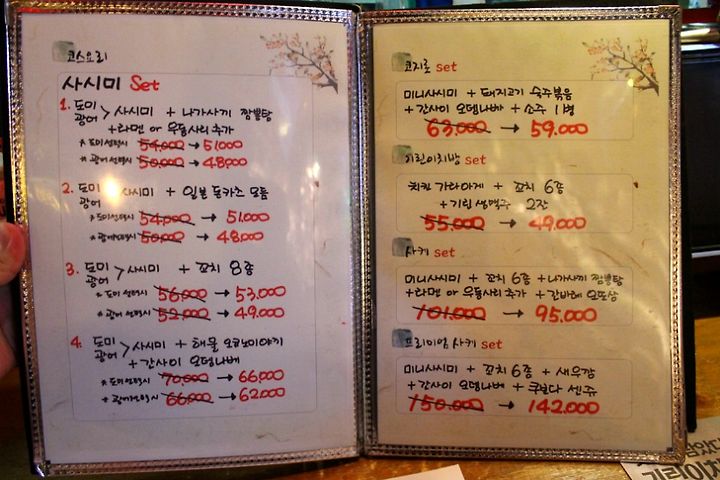 코스요리
사시미 Set
1. 도미
광어 > 사시미 + 나가사끼 짬뽕탕
+ 라멘 or 우동사리 추가
* 도미 선택시 54,000 → 51,000
* 광어 선택시 50,000 → 48,000
2. 도미
광어 사시미 + 일본 돈카츠 모듬
* 도미선택시 54,000 → 51,000
* 광어선택시 50,000 → 48,000
3. 도미
광어 > 사시미 + 꼬치 8종
* 도미 선택시 56,000 → 53,000
* 광어 선택시 52,000 → 49,000
4. 도미
광어 > 사시미 + 해물 오코노미야끼
+ 간사이 오뎅나베
* 도미 선택시 70,000 → 66,000
* 광어선택시 66,000 → 62,000
코지로 set
미니사시미 + 돼지고기 숙주볶음
+ 간사이 오뎅나베 + 소주 1병
63,000 → 59,000
기린이치방 set
치킨 가라아게 + 꼬치 6종
+ 기린 생맥주 2잔
55,000 → 49,000
사케 set
미니사시미 + 꼬치 6종 + 나가사끼 짬뽕탕
+ 라멘 or 우동사리 추가 + 간바레 오또상
101,000 → 95,000
프리미엄 사케 set
미니사시미 + 꼬치 6종 + 새우깡
+ 간사이 오뎅나베 + 쿠보다 센쥬
150,000 → 142,000